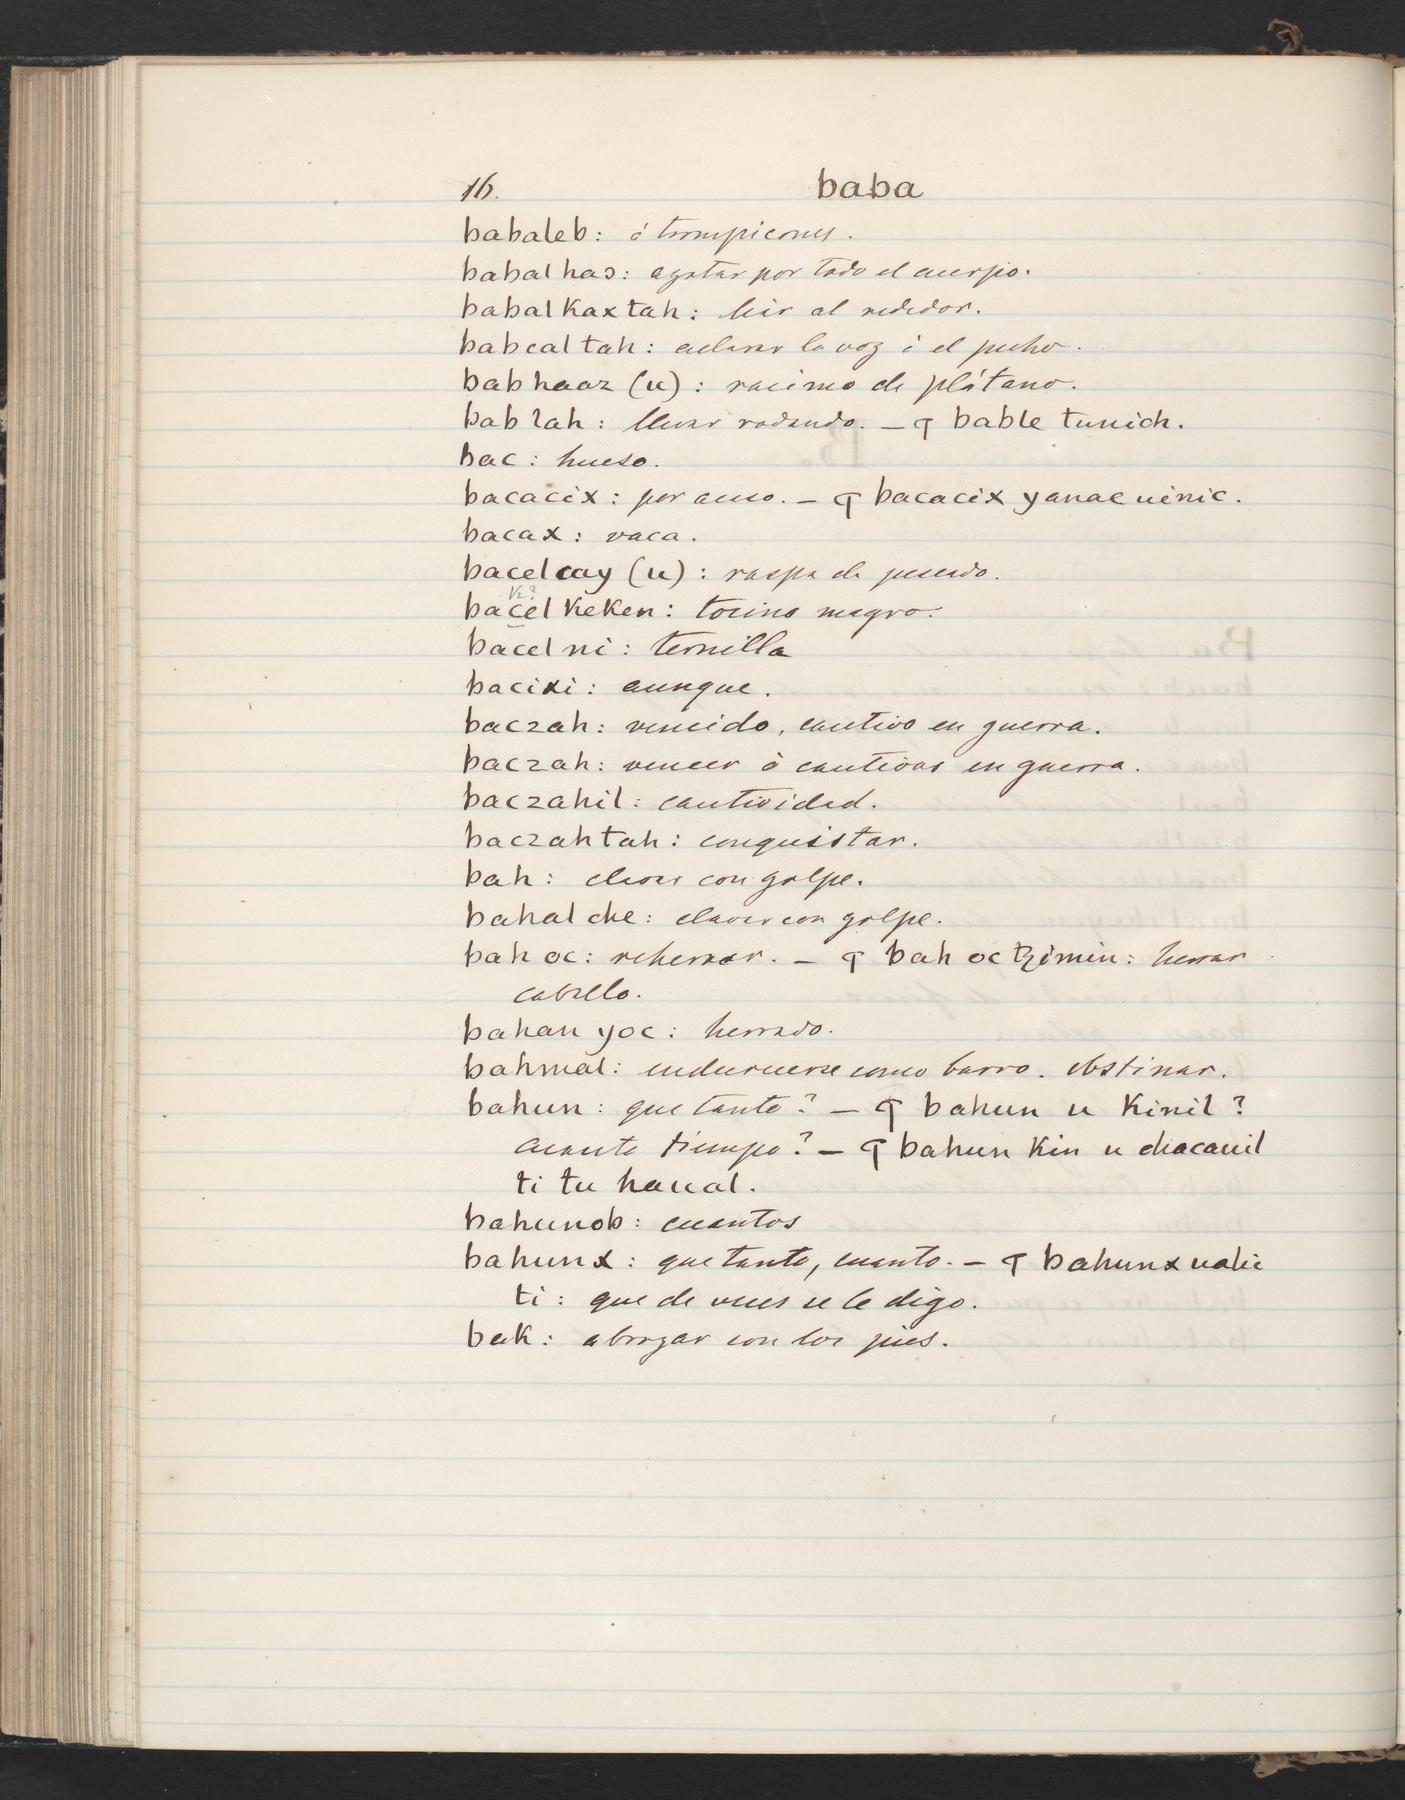 16. baba
babaleb: á trompicones.
babal haɔ: azotar por todo el cuerpo.
babal kax tah: liar al rededor.
babcal tah: aclarar la voz i el pecho.
bab haaz (u): racimo de plátano.
bab lah: llevar rodando. – ꟼ bable tunich.
bac: hueso.
bacacix: por acaso. – ꟼ bacacix yanac uinic.
bacax: vaca.
bacel cay (u): raspa de pescado.
k?
bacel keken: tocino magro.
bacel ni: ternilla
bacixi: aunque.
baczah: vencido, cautivo en guerra.
baczah: vencer ò cautivar en guerra.
baczahil: cautividad.
baczah tah: conquistar.
bah: clavar con golpe.
bahal che: clavar con golpe.
bah oc: reherrar. – ꟼ bah oc tzimin: herrar
caballo.
bahan yoc: herrado.
bahmal: endurecerse como barro. obstinar.
bahun: que tanto? – ꟼ bahun u kinil?
cuanto tiempo? – ꟼ bahun kin u chacauil
ti tu haual.
bahunob: cuantos
bahunx: que tanto, cuanto. – ꟼ bahunx ualic
ti: que de veces se le digo.
bak: abrazar con los pies.